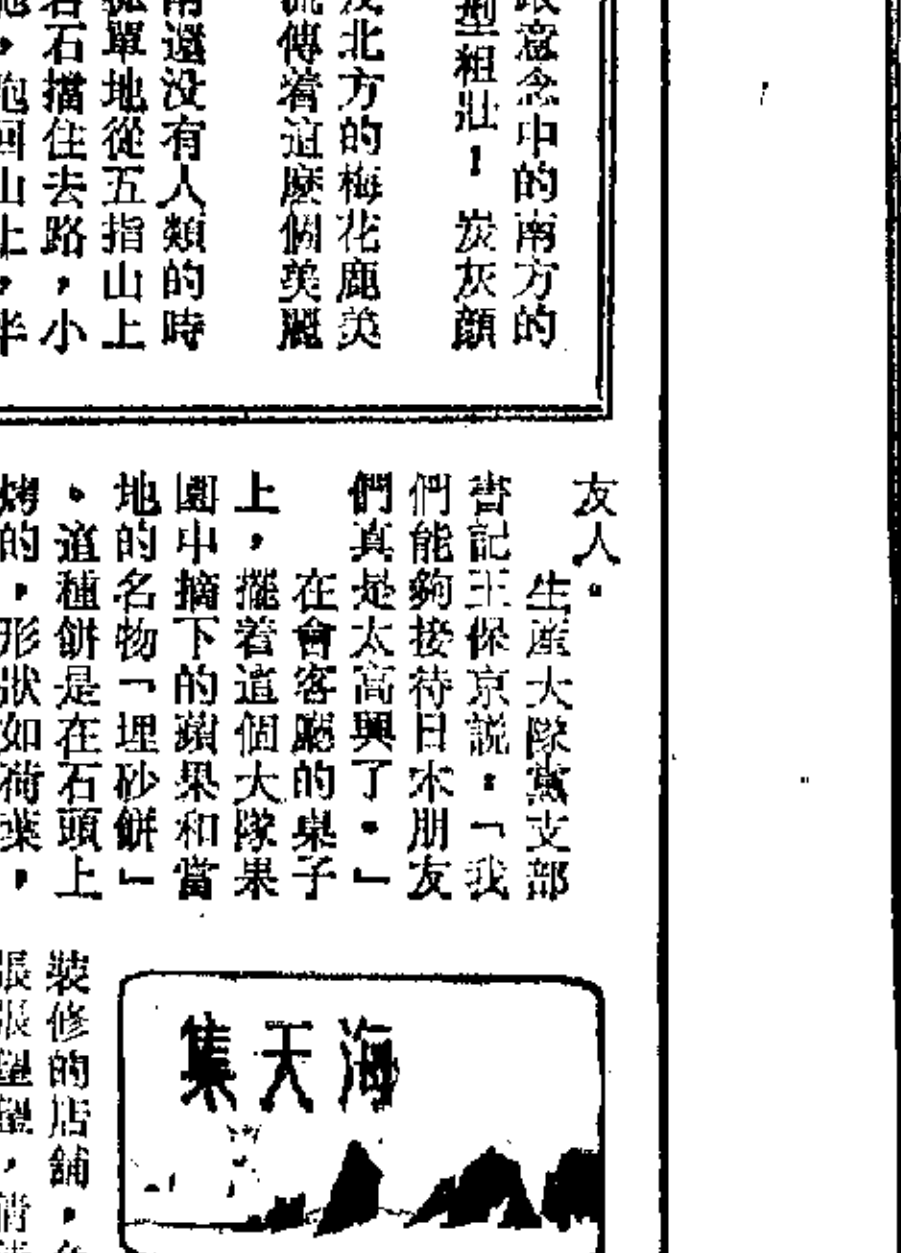 意念中的南方的
型粗壯！炭灰顔
北方的梅花鹿美
流傳着這麼個美麗
還没有人類的時
單地從五指山上
石擋住去路，小
，跑回山上，半
友人。
生産大隊黨支部
書記王保京説：「我
們能夠接待日本朋友
們真是太高興了。」
在會客廳的桌子
上，擺着這個大隊果
園中摘下的蘋果和當
地的名物「埋砂餅」
。這種餅是在石頭上
烤的，形狀如荷葉，
海天集
裝修的店舖，
張張望望，